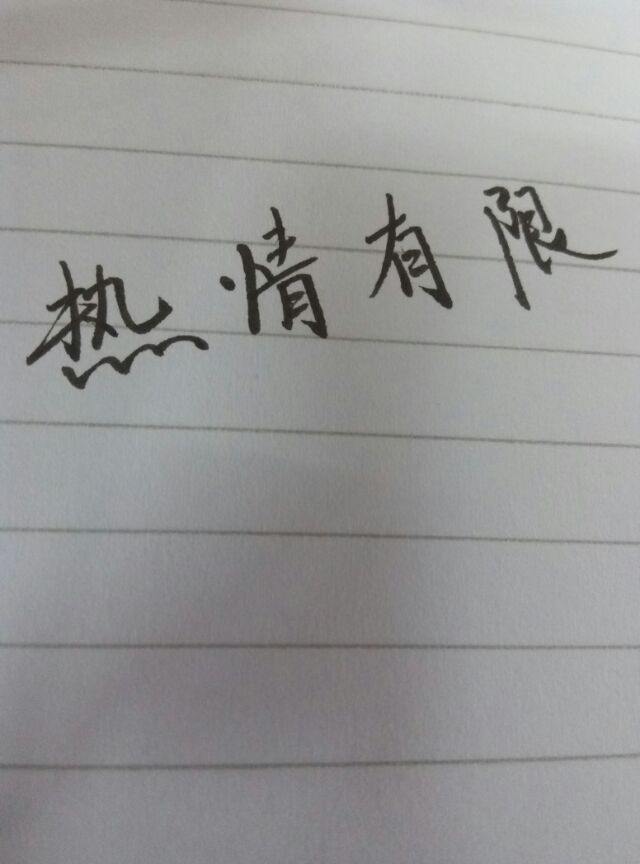 热情有限